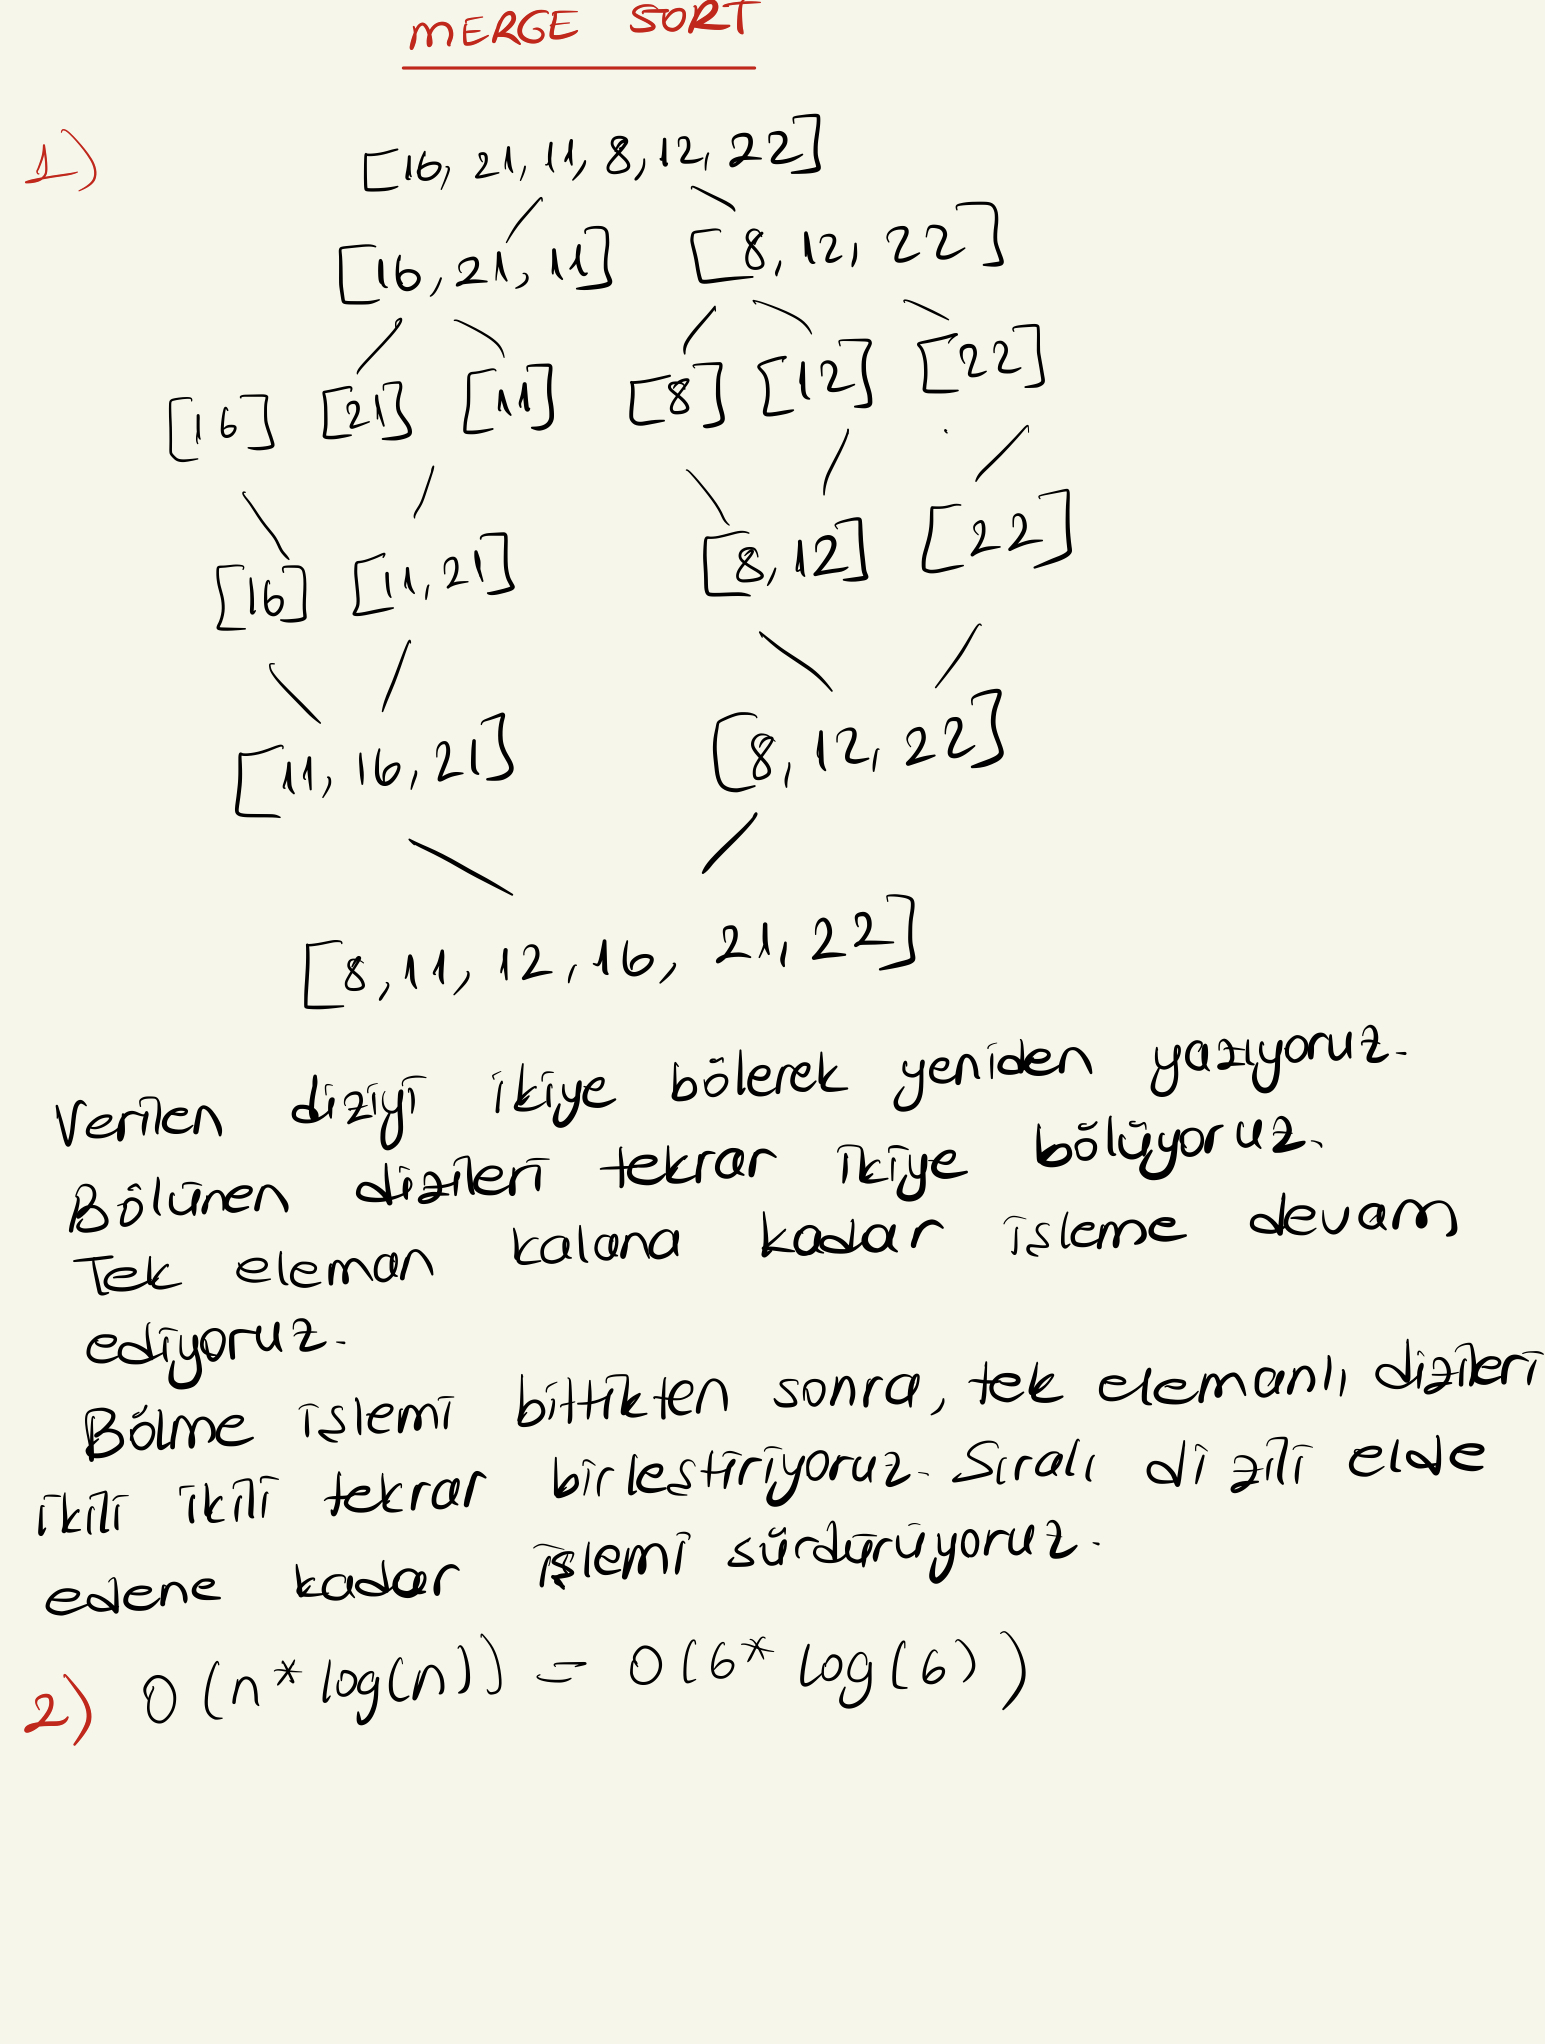 MERGE SORT
1)
[16, 21, 11, 8, 12, 22]
[16, 21, 11] [8, 12, 22]
[16] [21] [11] [8] [12] [22]
[16] [11, 21] [8, 12] [22]
[11, 16, 21] [8, 12, 22]
[8, 11, 12, 16, 21, 22]
Verilen diziyi ikiye bölerek yeniden yazıyoruz.
Bölünen dizileri tekrar ikiye bölüyoruz.
Tek eleman kalana kadar işleme devam
ediyoruz.
Bölme işlemi bittikten sonra, tek elemanlı dizileri
ikili ikili tekrar birleştiriyoruz. Sıralı dizili elde
edene kadar işlemi sürdürüyoruz.
2) O(n*log(n)) = O(6* log(6))